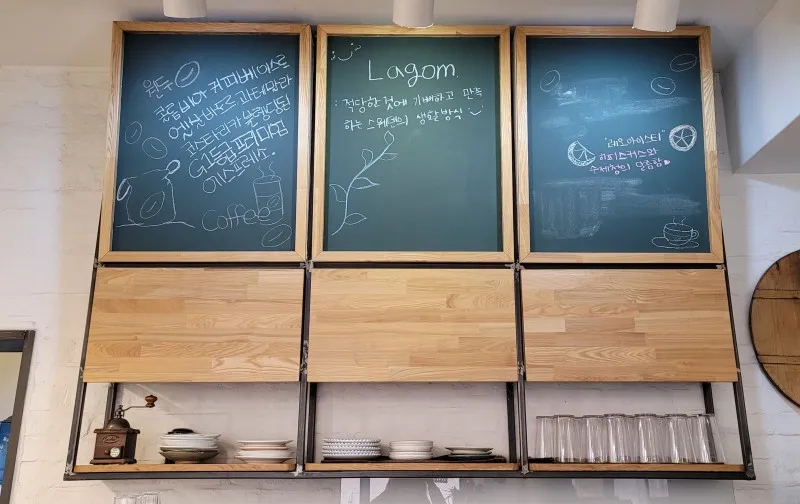 원두
콜롬비아 커피베이스로
엘살바도르 과테말라
코스타리카 블렌딩된
G1등급 프리미엄
에스프레소.
Coffee
Lagom
: 적당한 것에 기뻐하고 만족
하는 스웨덴의 생활방식
"레오아이스티"
히비스커스와
수제청의 달콤함